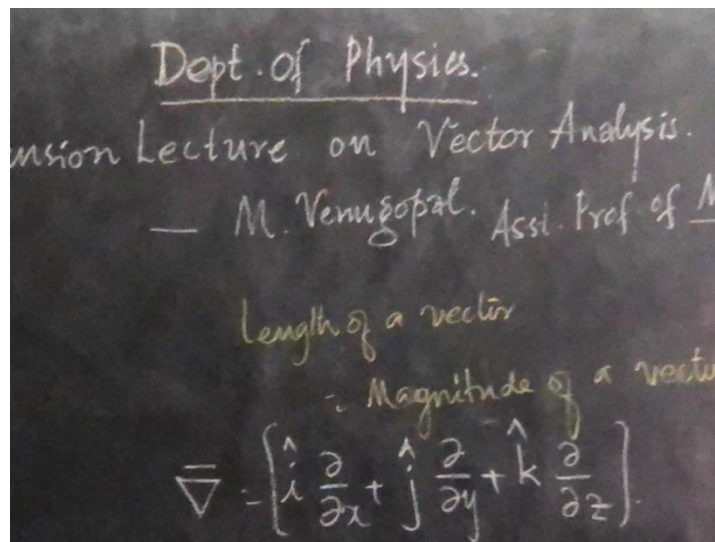 Dept. of Physics.
nsion Lecture on Vector Analysis.
— M. Venugopal. Asst. Prof of M
Length of a vector
= Magnitude of a vecto
∇̅ = [î ∂/∂x + ĵ ∂/∂y + k̂ ∂/∂z].